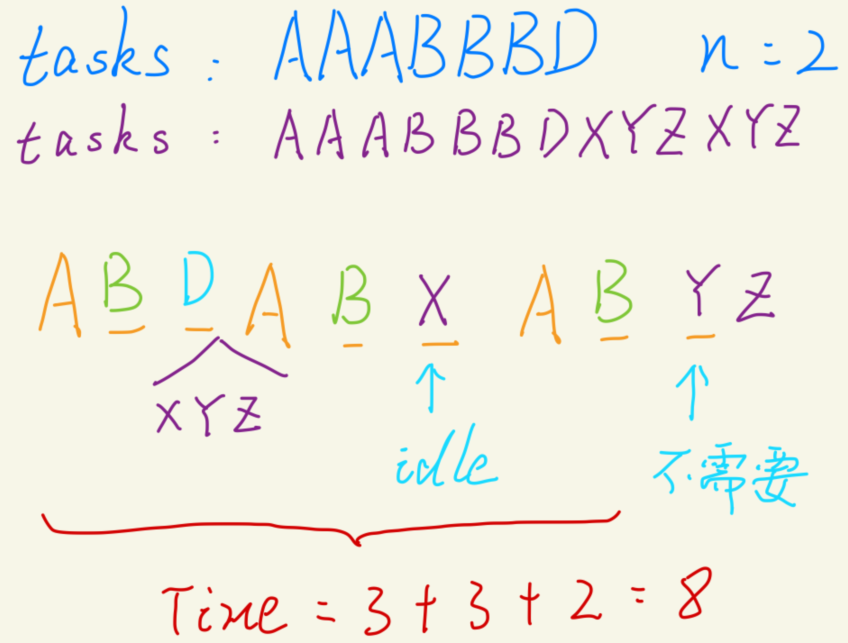 tasks : AAABBBD n = 2
tasks : AAABBBDXYZXYZ
A B D A B X A B Y Z
XYZ
idle 不需要
Time = 3 + 3 + 2 = 8